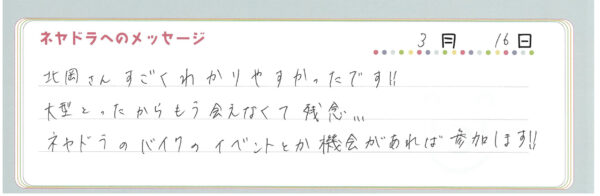 ネヤドラへのメッセージ
3月 16日
北岡さんすごくわかりやすかったです!!
大型とったからもう会えなくて残念...
ネヤドラのバイクのイベントとか機会があれば参加します!!